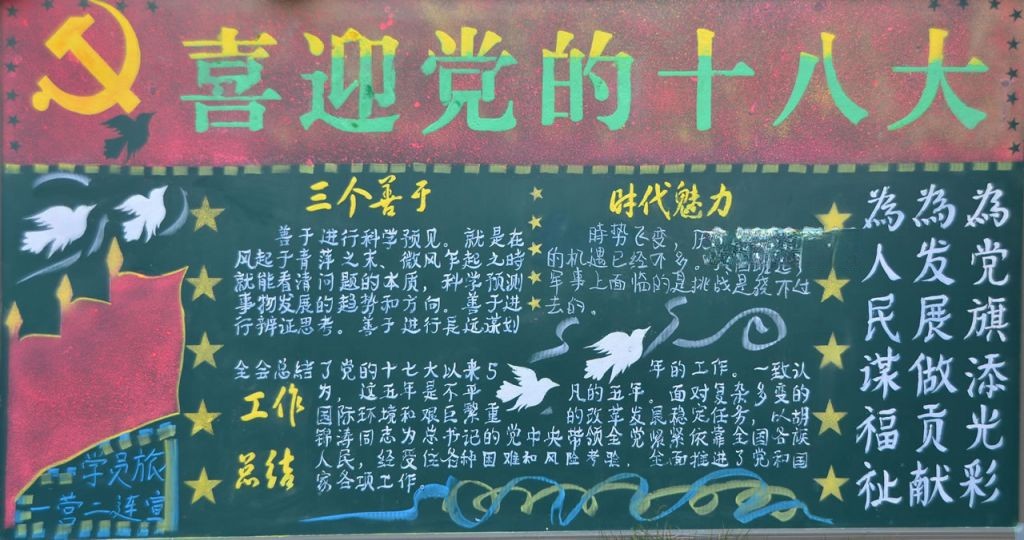 喜迎党的十八大
三个善于
善于进行科学预见。就是在
风起于青萍之末、微风乍起之时
就能看清问题的本质，科学预测
事物发展的趋势和方向。善于进
行辨证思考。善于进行长远谋划
时代魅力
時势飞变，历
的机遇已经不多。
军事上面临的是挑战是夜不过
去的。
工作
总结
全会总结了党的十七大以来5年的工作。一致认
为，这五年是不平凡的五年。面对复杂多变的
国际环境和艰巨繁重的改革发展稳定任务，以胡
锦涛同志为总书记的党中央带领全党紧紧依靠全国各族
人民，经受住各种困难和风险考验，全面推进了党和国
家各项工作。
為党旗添光彩
為发展做贡献
為人民谋福祉
学员旅
一营二连宣